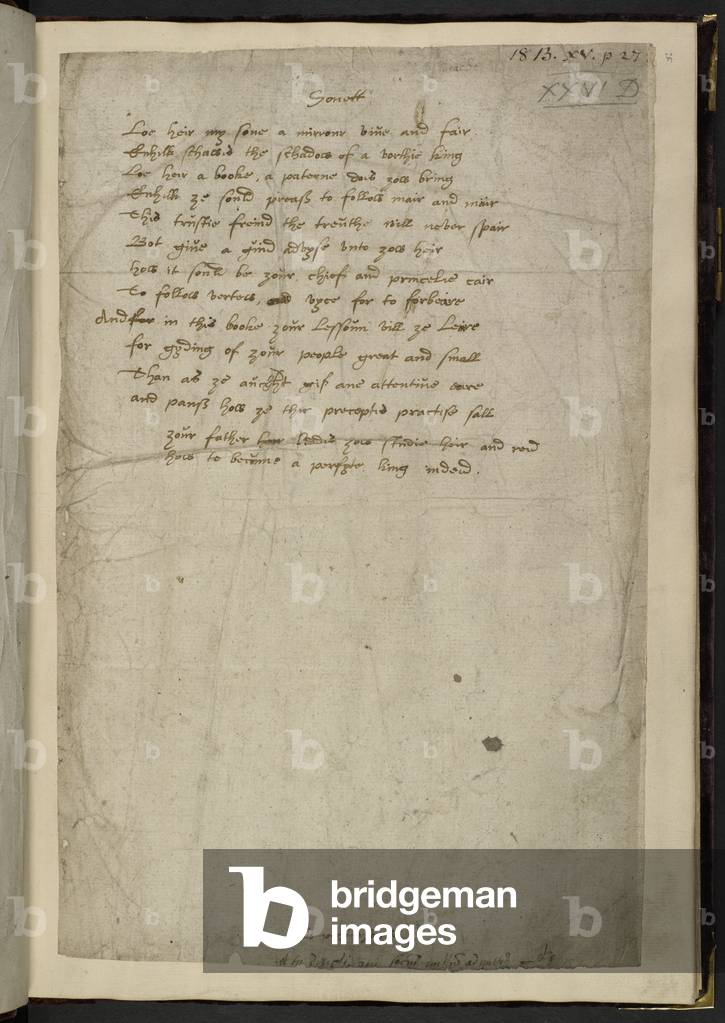 1813. xv. p 27
XXVI D
Sonett
Loe heir my sone a mirrour viue and fair
Quhilk schawis the schadow of a vorthie king
Loe heir a booke, a paterne dois zow bring
Quhilk ze sould preass to follow mair and mair
This trustie freind the treuthe will never spair
Bot giue a guid advyse vnto zow heir
how it sould be zour chief and princelie cair
To follow vertew, vyce for to forbeire
And in this booke zour Lessoun vill ze Leire
for gyding of zour people great and small
Than as ze aucht gif ane attentiue eare
and panss how ze thir preceptis practise sall
zour father biddis zow studie heir and reid
how to become a perfyte king indeid.
b bridgeman
images